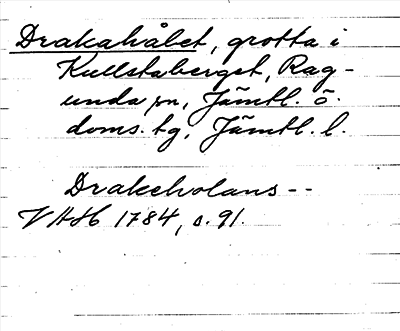 Drakahålet, grotta i
Kullstaberget, Rag-
unda sn, Jämtl. ö.
doms. tg, Jämtl. l.
Drakeholans --
VAH 1784, s. 91.